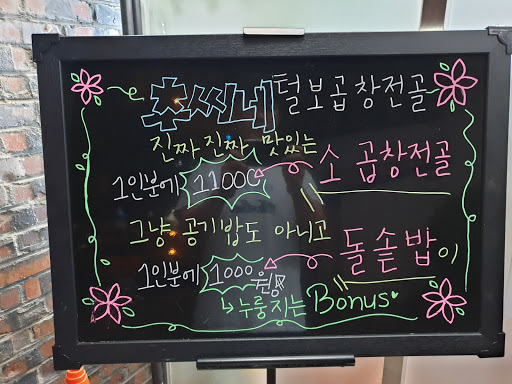 춘씨네 털보곱창전골
진짜 진짜 맛있는
1인분에 11000 소 곱창전골
그냥 공기밥도 아니고
1인분에 1000원 돌솥밥이
↳누룽지는 Bonus♥